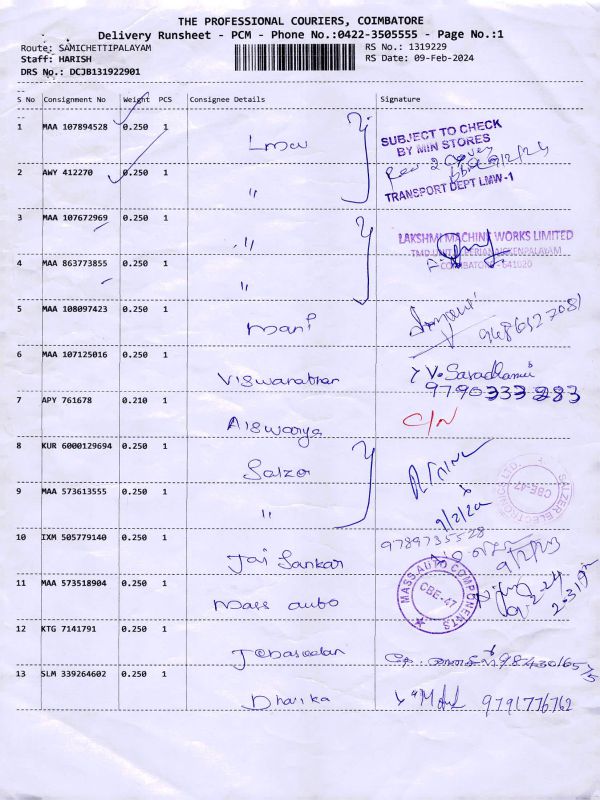 THE PROFESSIONAL COURIERS, COIMBATORE
Delivery Runsheet - PCM - Phone No.:0422-3505555 - Page No.:1
Route: SAMICHETTIPALAYAM RS No.: 1319229
Staff: HARISH RS Date: 09-Feb-2024
DRS No.: DCJB131922901
S No Consignment No Weight PCS Consignee Details Signature
1 MAA 107894528 0.250 1 Lmw
SUBJECT TO CHECK
BY MIN STORES
TRANSPORT DEPT LMW-1
2 AWY 412270 0.250 1 "
3 MAA 107672969 0.250 1 "
LAKSHMI MACHINE WORKS LIMITED
COIMBATORE - 641020
4 MAA 863773855 0.250 1 "
5 MAA 108097423 0.250 1 Mani 9486527081
6 MAA 107125016 0.250 1 Viswanathan
9790333283
7 APY 761678 0.210 1 Aiswarya C/N
8 KUR 6000129694 0.250 1 Salzer
SALZER ELECTRONICS LTD.
CBE-47
9 MAA 573613555 0.250 1 "
10 IXM 505779140 0.250 1 Jai Sankar 9789735528
11 MAA 573518904 0.250 1 Mass auto
MASS AUTO COMPONENTS
CBE-47
12 KTG 7141791 0.250 1 Jebaseelan
13 SLM 339264602 0.250 1 Dharika 9791776762